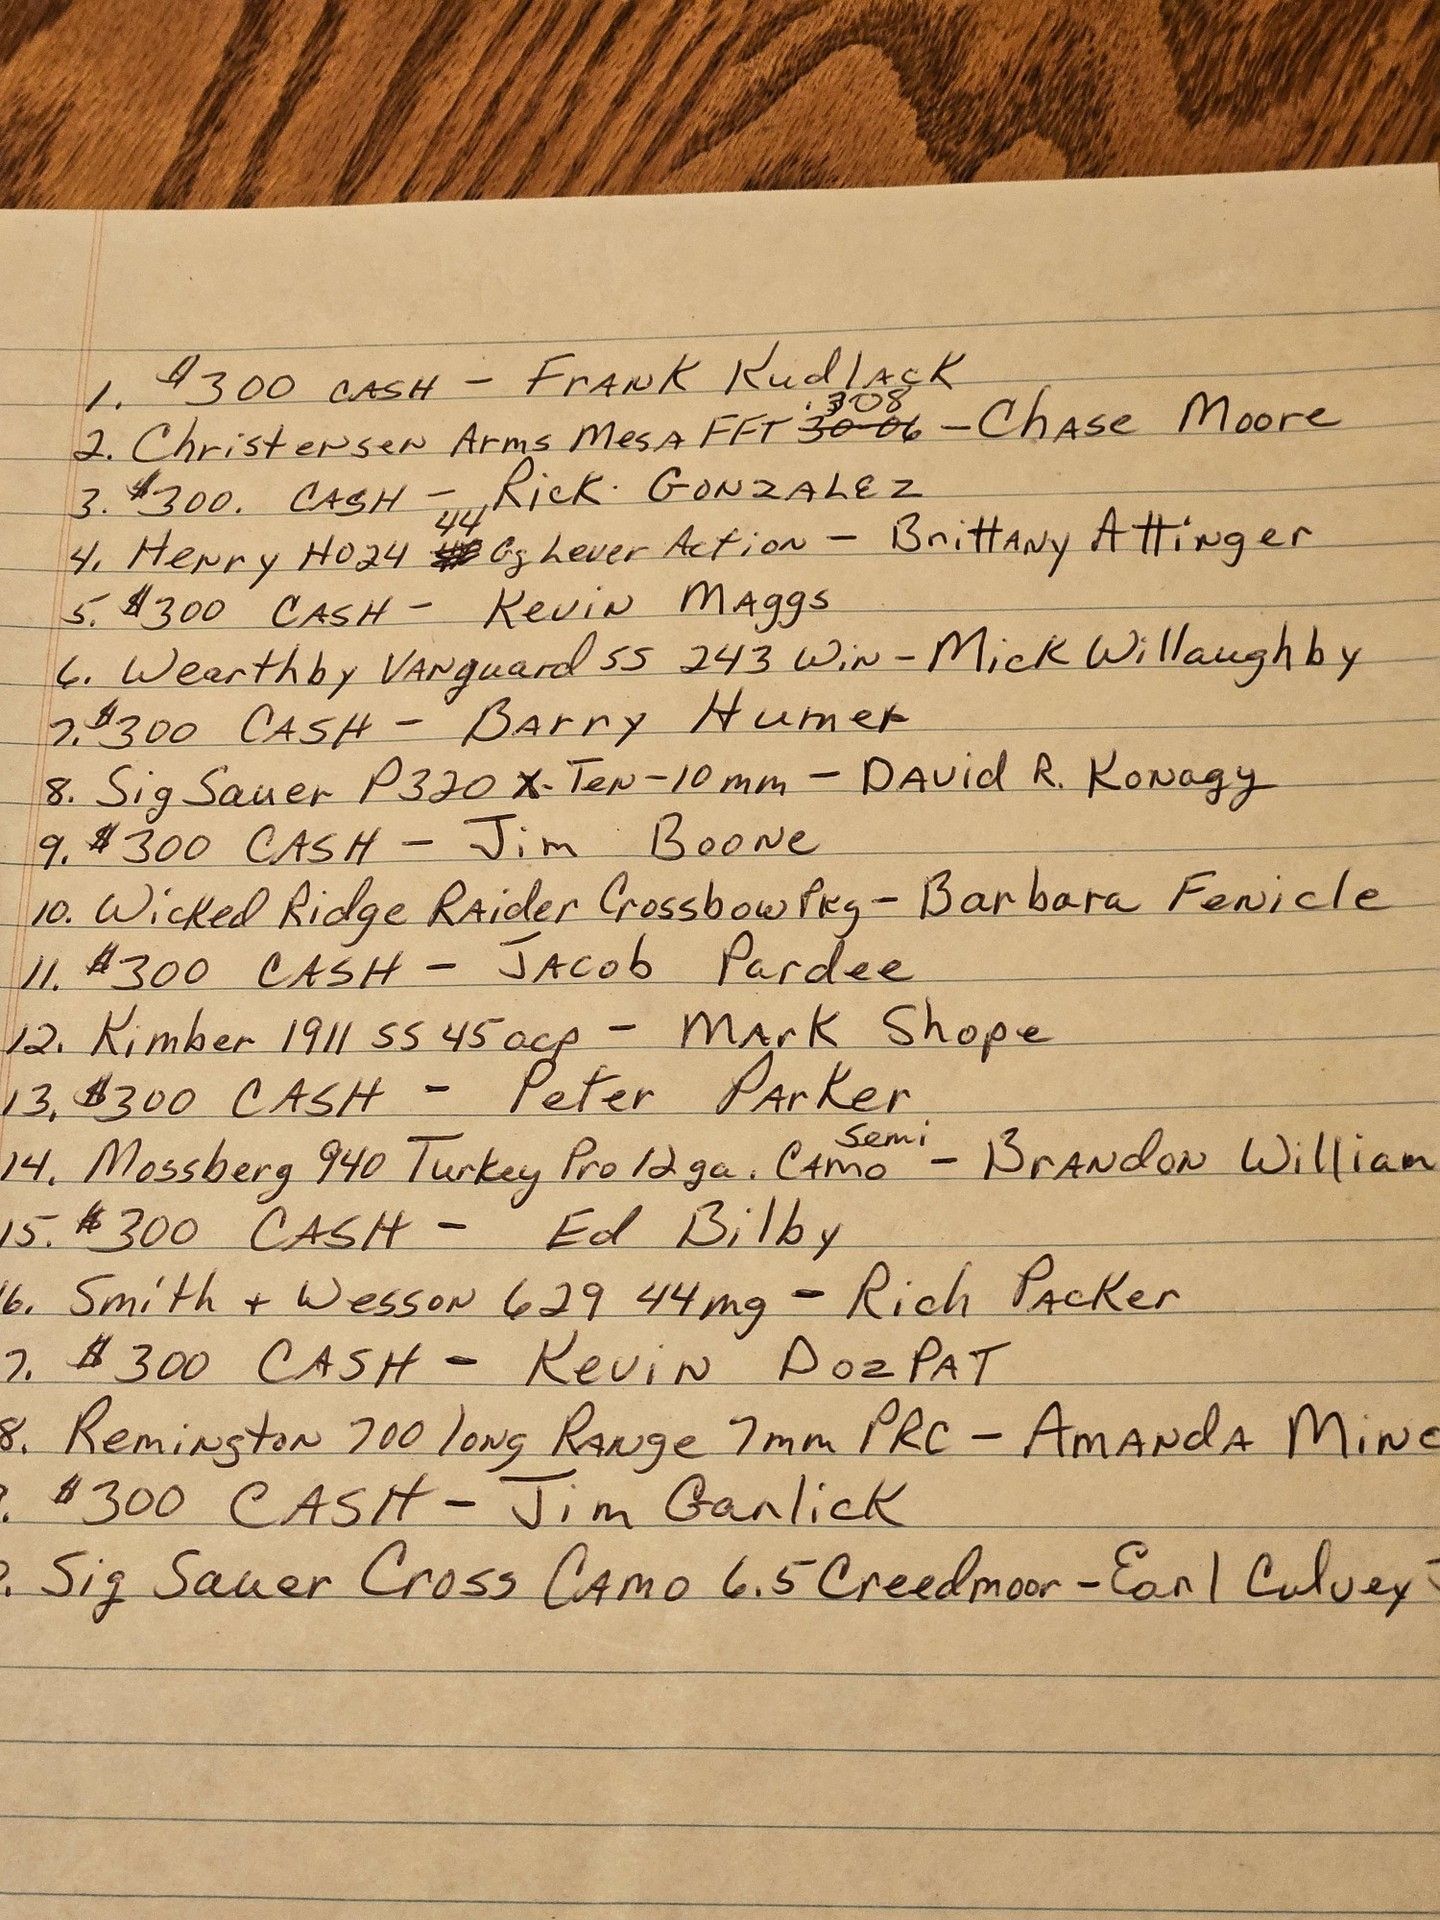 1. $300 CASH - FRANK KudlACK
2. Christensen Arms MesA FFT 30-06 .308 - Chase Moore
3. $300. CASH - Rick GONZALEZ
4. Henry H024 44 Lever Action - Brittany Attinger
5. $300 CASH - Kevin Maggs
6. Wearthby VANguard SS 243 Win - Mick Willaughby
7. $300 CASH - Barry Humer
8. Sig Sauer P320 X-Ten-10mm - David R. Konagy
9. $300 CASH - Jim Boone
10. Wicked Ridge Raider Crossbow Pkg - Barbara Fenicle
11. $300 CASH - Jacob Pardee
12. Kimber 1911 SS 45 acp - Mark Shope
13. $300 CASH - Peter Parker
14. Mossberg 940 Turkey Pro 12 ga. Camo Semi - Brandon William
15. $300 CASH - Ed Bilby
16. Smith + Wesson 629 44 mg - Rich Packer
7. $300 CASH - Kevin DozPAT
8. Remington 700 long Range 7mm PRC - Amanda Minc
$300 CASH - Jim Garlick
Sig Sauer Cross Camo 6.5 Creedmoor - Earl Culvey